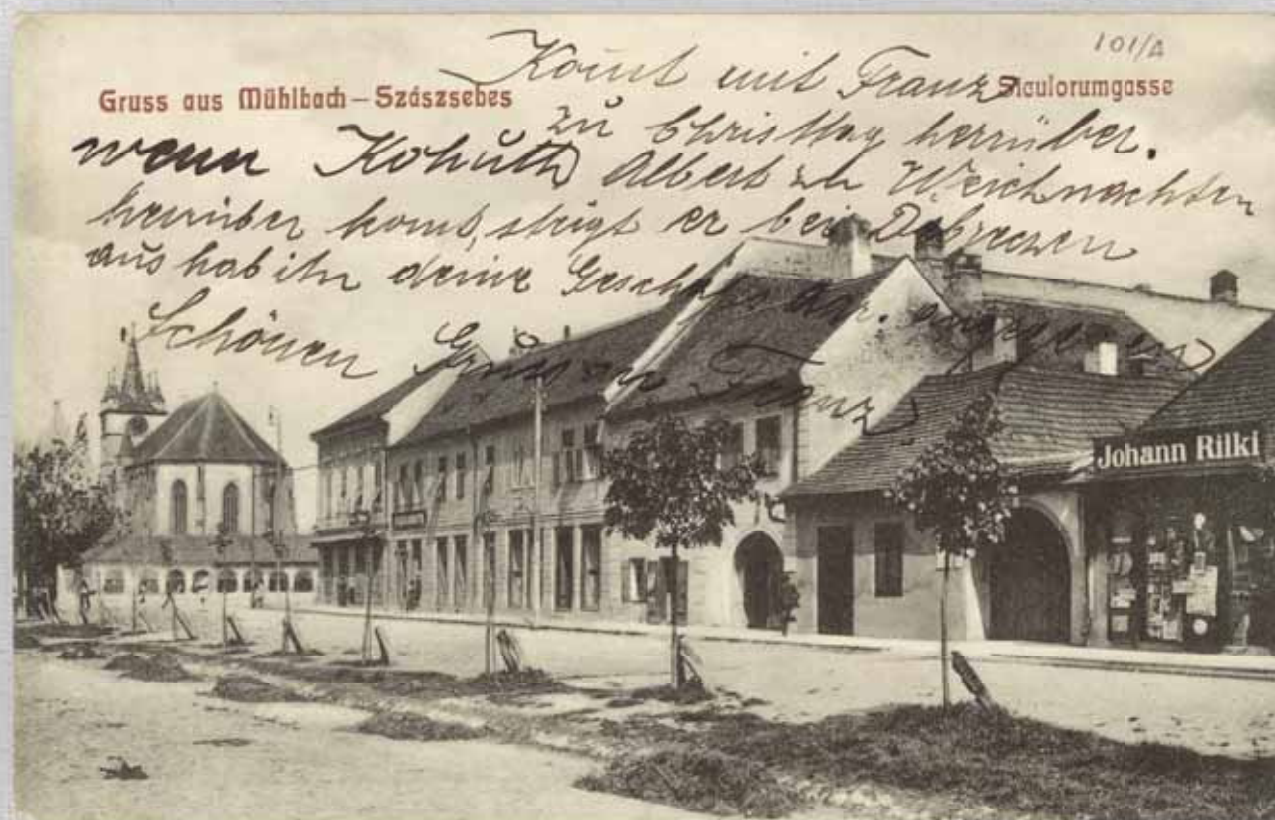 101/A
Gruss aus Mühlbach – Szászsebes
Siculorumgasse
Komt mit Franz
zu Christtag herrüber.
wenn Kohuth Albert zu Weichnachten
herrüber komt, steigt er bei Debrezen
aus hab ihn deine
Schönen Franz
Johann Rilki